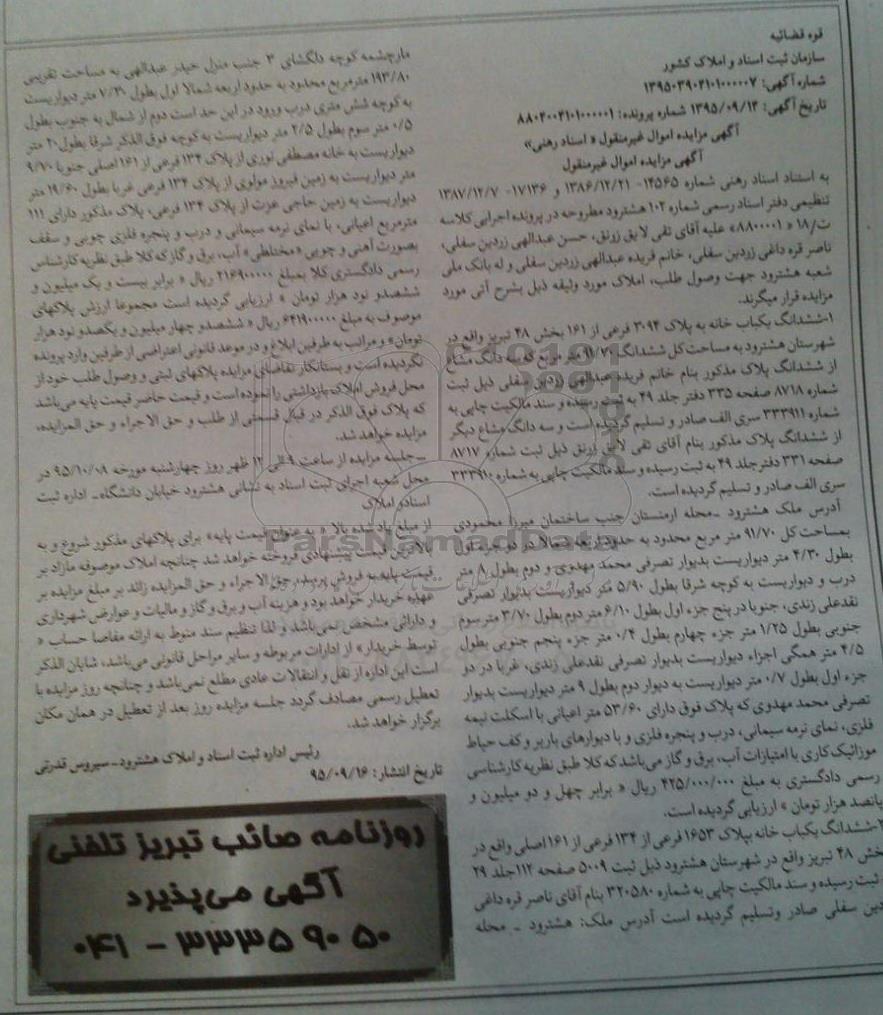 قوه قضائیه
سازمان ثبت اسناد و املاک کشور
شماره آگهی: ۱۳۹۵۰۳۹۰۴۱۰۱۰۰۰۰۰۷
تاریخ آگهی: ۱۳۹۵/۰۹/۱۳ شماره پرونده: ۸۸۰۴۰۰۴۱۰۱۰۰۰۰۰۱
آگهی مزایده اموال غیرمنقول « اسناد رهنی»
آگهی مزایده اموال غیرمنقول
به استناد اسناد رهنی شماره ۱۴۵۶۵- ۱۳۸۶/۱۲/۲۱ و ۱۷۱۳۶- ۱۳۸۷/۱۲/۷
تنظیمی دفتر اسناد رسمی شماره ۱۰۲ هشترود مطروحه در پرونده اجرایی کلاسه
ث/۱۸ « ۸۸۰۰۰۰۱» علیه آقای تقی لایق زرنق، حسن عبدالهی زردین سفلی،
ناصر قره داغی زردین سفلی، خانم فریده عبدالهی زردین سفلی و له بانک ملی
شعبه هشترود جهت وصول طلب، املاک مورد وثیقه ذیل بشرح آتی مورد
مزایده قرار میگرند.
۱-ششدانگ یکباب خانه به پلاک ۳۰۹۴ فرعی از ۱۶۱ بخش ۴۸ تبریز واقع در
شهرستان هشترود به مساحت کل ششدانگ ۹۱/۷۰ متر مربع که سه دانگ مشاع
از ششدانگ پلاک مذکور بنام خانم فریده عبدالهی زردین سفلی ذیل ثبت
شماره ۸۷۱۸ صفحه ۳۳۵ دفتر جلد ۴۹ به ثبت رسیده و سند مالکیت چاپی به
شماره ۳۳۳۹۱۱ سری الف صادر و تسلیم گردیده است و سه دانگ مشاع دیگر
از ششدانگ پلاک مذکور بنام آقای تقی لایق زرنق ذیل ثبت شماره ۸۷۱۷
صفحه ۳۳۱ دفترجلد ۴۹ به ثبت رسیده و سند مالکیت چاپی به شماره ۳۳۳۹۱۰
سری الف صادر و تسلیم گردیده است.
آدرس ملک هشترود -محله ارمنستان جنب ساختمان میرزا محمودی
بمساحت کل ۹۱/۷۰ متر مربع محدود به حدود اربعه شمالا در دو جزء اول
بطول ۴/۳۰ متر دیواریست بدیوار تصرفی محمد مهدوی و دوم بطول ۸ متر
درب و دیواریست به کوچه شرقا بطول ۵/۹۰ متر دیواریست بدیوار تصرفی
نقدعلی زندی، جنوبا در پنج جزء اول بطول ۶/۱۰ متر دوم بطول ۳/۷۰ متر سوم
جنوبی بطول ۱/۲۵ متر جزء چهارم بطول ۰/۴ متر جزء پنجم جنوبی بطول
۴/۵ متر همگی اجزاء دیواریست بدیوار تصرفی نقدعلی زندی، غربا در دو
جزء اول بطول ۰/۷ متر دیواریست به دیوار دوم بطول ۹ متر دیواریست بدیوار
تصرفی محمد مهدوی که پلاک فوق دارای ۵۳/۶۰ متر اعیانی با اسکلت نیمه
فلزی، نمای نرمه سیمانی، درب و پنجره فلزی و با دیوارهای باربر و کف حیاط
موزائیک کاری با امتیازات آب، برق و گاز می‌باشد که کلا طبق نظریه کارشناسی
رسمی دادگستری به مبلغ ۴۲۵/۰۰۰/۰۰۰ ریال « برابر چهل و دو میلیون و
پانصد هزار تومان » ارزیابی گردیده است.
۲-ششدانگ یکباب خانه بپلاک ۱۶۵۳ فرعی از ۱۳۴ فرعی از ۱۶۱ اصلی واقع در
بخش ۴۸ تبریز واقع در شهرستان هشترود ذیل ثبت ۵۰۰۹ صفحه ۱۱۲ جلد ۲۹
ثبت رسیده و سند مالکیت چاپی به شماره ۳۲۰۵۸۰ بنام آقای ناصر قره داغی
دین سفلی صادر وتسلیم گردیده است آدرس ملک: هشترود - محله
مارچشمه کوچه دلگشای ۳ جنب منزل حیدر عبدالهی به مساحت تقریبی
۱۹۳/۸۰ مترمربع محدود به حدود اربعه شمالا اول بطول ۷/۳۰ متر دیواریست
به کوچه شش متری درب ورود در این حد است دوم از شمال به جنوب بطول
۰/۵ متر سوم بطول ۲/۵ متر دیواریست به کوچه فوق الذکر شرقا بطول ۲۰ متر
دیواریست به خانه مصطفی نوری از پلاک ۱۳۴ فرعی از ۱۶۱ اصلی جنوبا ۹/۷۰
متر دیواریست به زمین فیروز مولوی از پلاک ۱۳۴ فرعی غربا بطول ۱۹/۶۰ متر
دیواریست به زمین حاجی عزت از پلاک ۱۳۴ فرعی، پلاک مذکور دارای ۱۱۱
مترمربع اعیانی، با نمای نرمه سیمانی و درب و پنجره فلزی چوبی و سقف
بصورت آهنی و چوبی « مختلطی» آب، برق و گاز که کلا طبق نظریه کارشناس
رسمی دادگستری کلا بمبلغ ۲۱۶۹۰۰۰۰۰ ریال « برابر بیست و یک میلیون و
ششصدو نود هزار تومان » ارزیابی گردیده است مجموعا ارزش پلاکهای
موصوف به مبلغ ۶۴۱۹۰۰۰۰۰ ریال « ششصدو چهار میلیون و یکصدو نود هزار
تومان» و مراتب به طرفین ابلاغ و در موعد قانونی اعتراضی از طرفین وارد پرونده
نگردیده است و بستانکار تقاضای مزایده پلاکهای ثبتی و وصول طلب خود از
محل فروش املاک بازداشتی را نموده است و قیمت حاضر قیمت پایه می‌باشد
که پلاک فوق الذکر در قبال قسمتی از طلب و حق الاجراء و حق المزایده،
مزایده خواهد شد.
-جلسه مزایده از ساعت ۹ الی ۱۲ ظهر روز چهارشنبه مورخه ۹۵/۱۰/۰۸ در
محل شعبه اجرای ثبت اسناد به نشانی هشترود خیابان دانشگاه- اداره ثبت
اسنادو املاک
از مبلغ یاد شده بالا « به عنوان قیمت پایه» برای پلاکهای مذکور شروع و به
بالاترین قیمت پیشنهادی فروخته خواهد شد چنانچه املاک موصوفه مازاد بر
قیمت پایه به فروش برسد، حق الاجراء و حق المزایده زائد بر مبلغ مزایده بر
عهده خریدار خواهد بود و هزینه آب و برق و گاز و مالیات و عوارض شهرداری
و دارائی مشخص نمی‌باشد و لذا تنظیم سند منوط به ارائه مفاصا حساب «
توسط خریدار» از ادارات مربوطه و سایر مراحل قانونی می‌باشد، شایان الذکر
است این اداره از نقل و انتقالات عادی مطلع نمی‌باشد و چنانچه روز مزایده با
تعطیل رسمی مصادف گردد جلسه مزایده روز بعد از تعطیل در همان مکان
برگزار خواهد شد.
رئیس اداره ثبت اسناد و املاک هشترود- سیروس قدرتی
تاریخ انتشار: ۹۵/۰۹/۱۶
روزنامه صائب تبریز تلفنی
آگهی می‌پذیرد
۰۴۱ - ۳۳۳۵۹۰۵۰
ParsNamadData